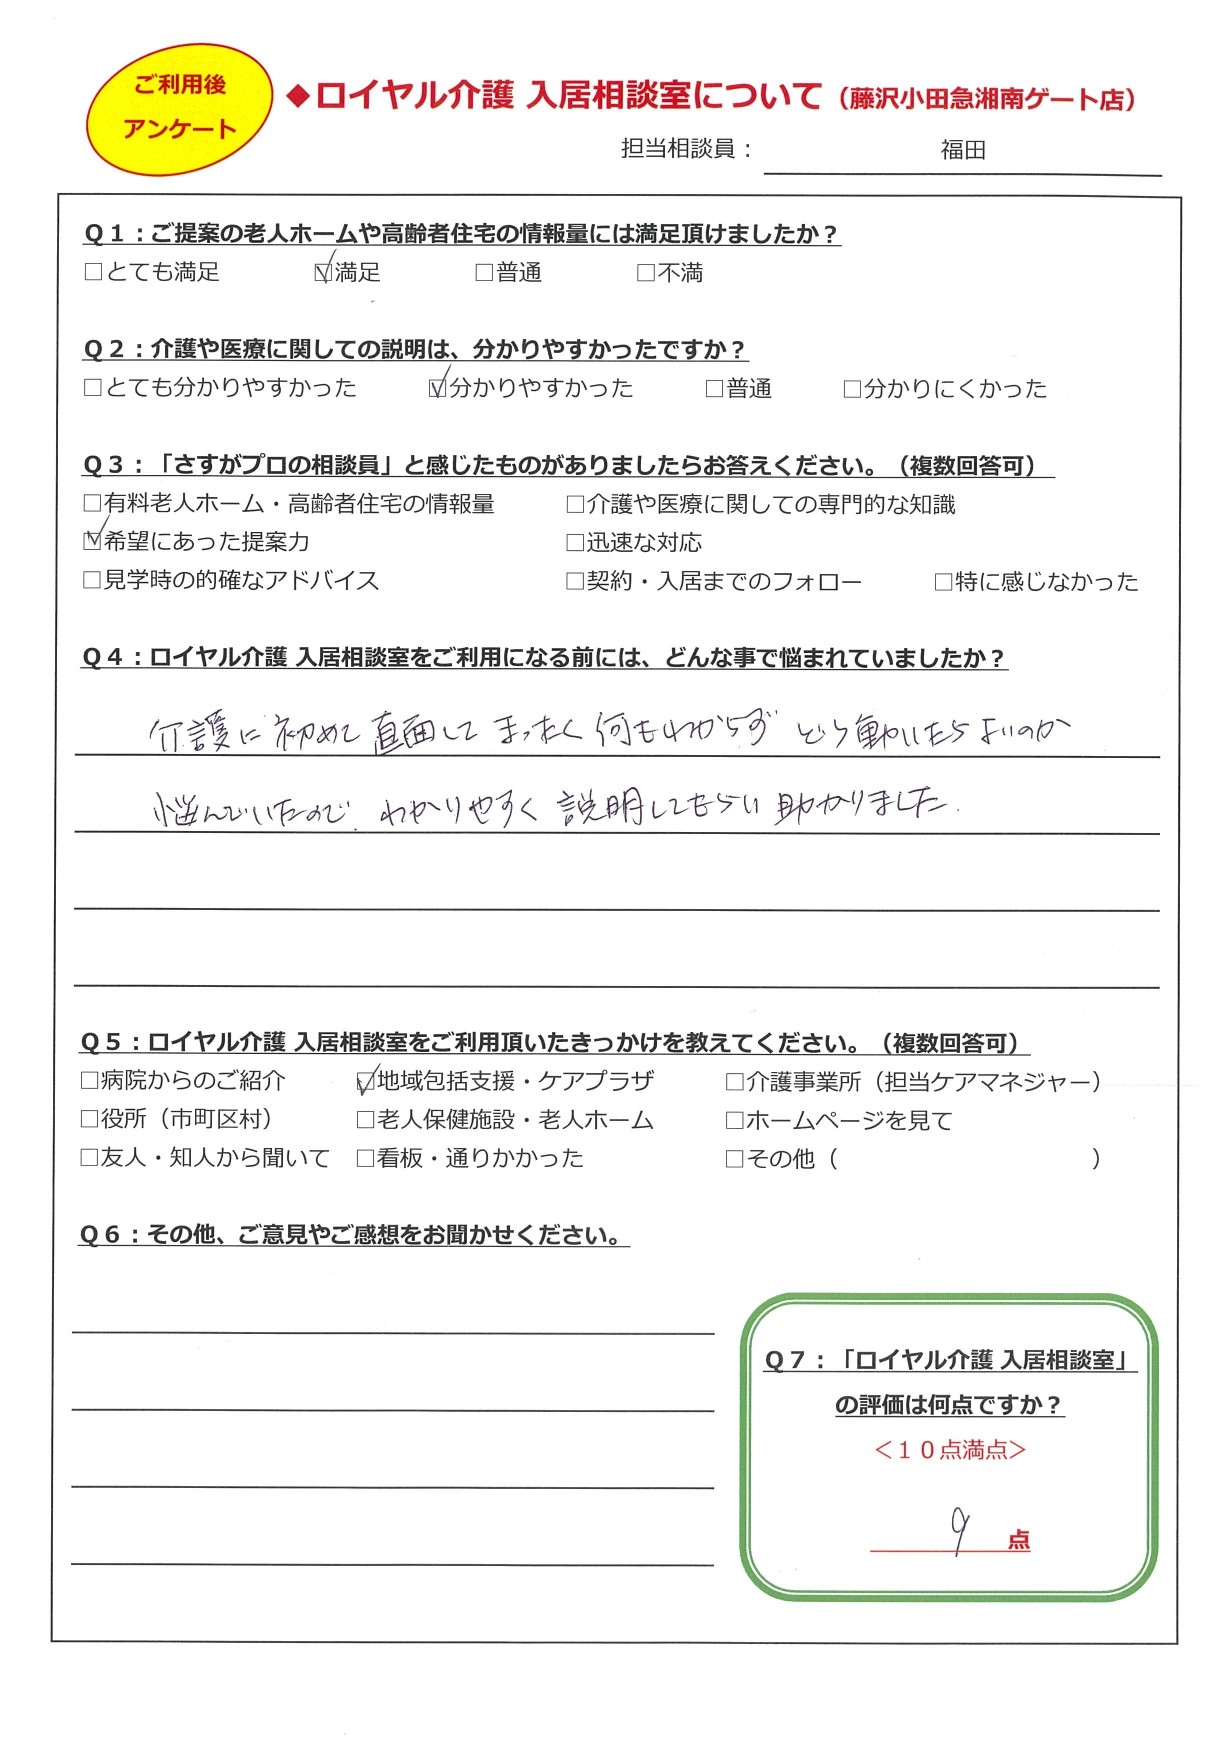 ご利用後
アンケート
◆ロイヤル介護 入居相談室について（藤沢小田急湘南ゲート店）
担当相談員： 福田
Ｑ１：ご提案の老人ホームや高齢者住宅の情報量には満足頂けましたか？
□とても満足 ☑満足 □普通 □不満
Ｑ２：介護や医療に関しての説明は、分かりやすかったですか？
□とても分かりやすかった ☑分かりやすかった □普通 □分かりにくかった
Ｑ３：「さすがプロの相談員」と感じたものがありましたらお答えください。（複数回答可）
□有料老人ホーム・高齢者住宅の情報量 □介護や医療に関しての専門的な知識
☑希望にあった提案力 □迅速な対応
□見学時の的確なアドバイス □契約・入居までのフォロー □特に感じなかった
Ｑ４：ロイヤル介護 入居相談室をご利用になる前には、どんな事で悩まれていましたか？
介護に初めて直面してまったく何もわからず どう動いたらよいのか
悩んでいたので わかりやすく説明してもらい助かりました.
Ｑ５：ロイヤル介護 入居相談室をご利用頂いたきっかけを教えてください。（複数回答可）
□病院からのご紹介 ☑地域包括支援・ケアプラザ □介護事業所（担当ケアマネジャー）
□役所（市町区村） □老人保健施設・老人ホーム □ホームページを見て
□友人・知人から聞いて □看板・通りかかった □その他（ ）
Ｑ６：その他、ご意見やご感想をお聞かせください。
Ｑ７：「ロイヤル介護 入居相談室」
の評価は何点ですか？
＜１０点満点＞
9 点